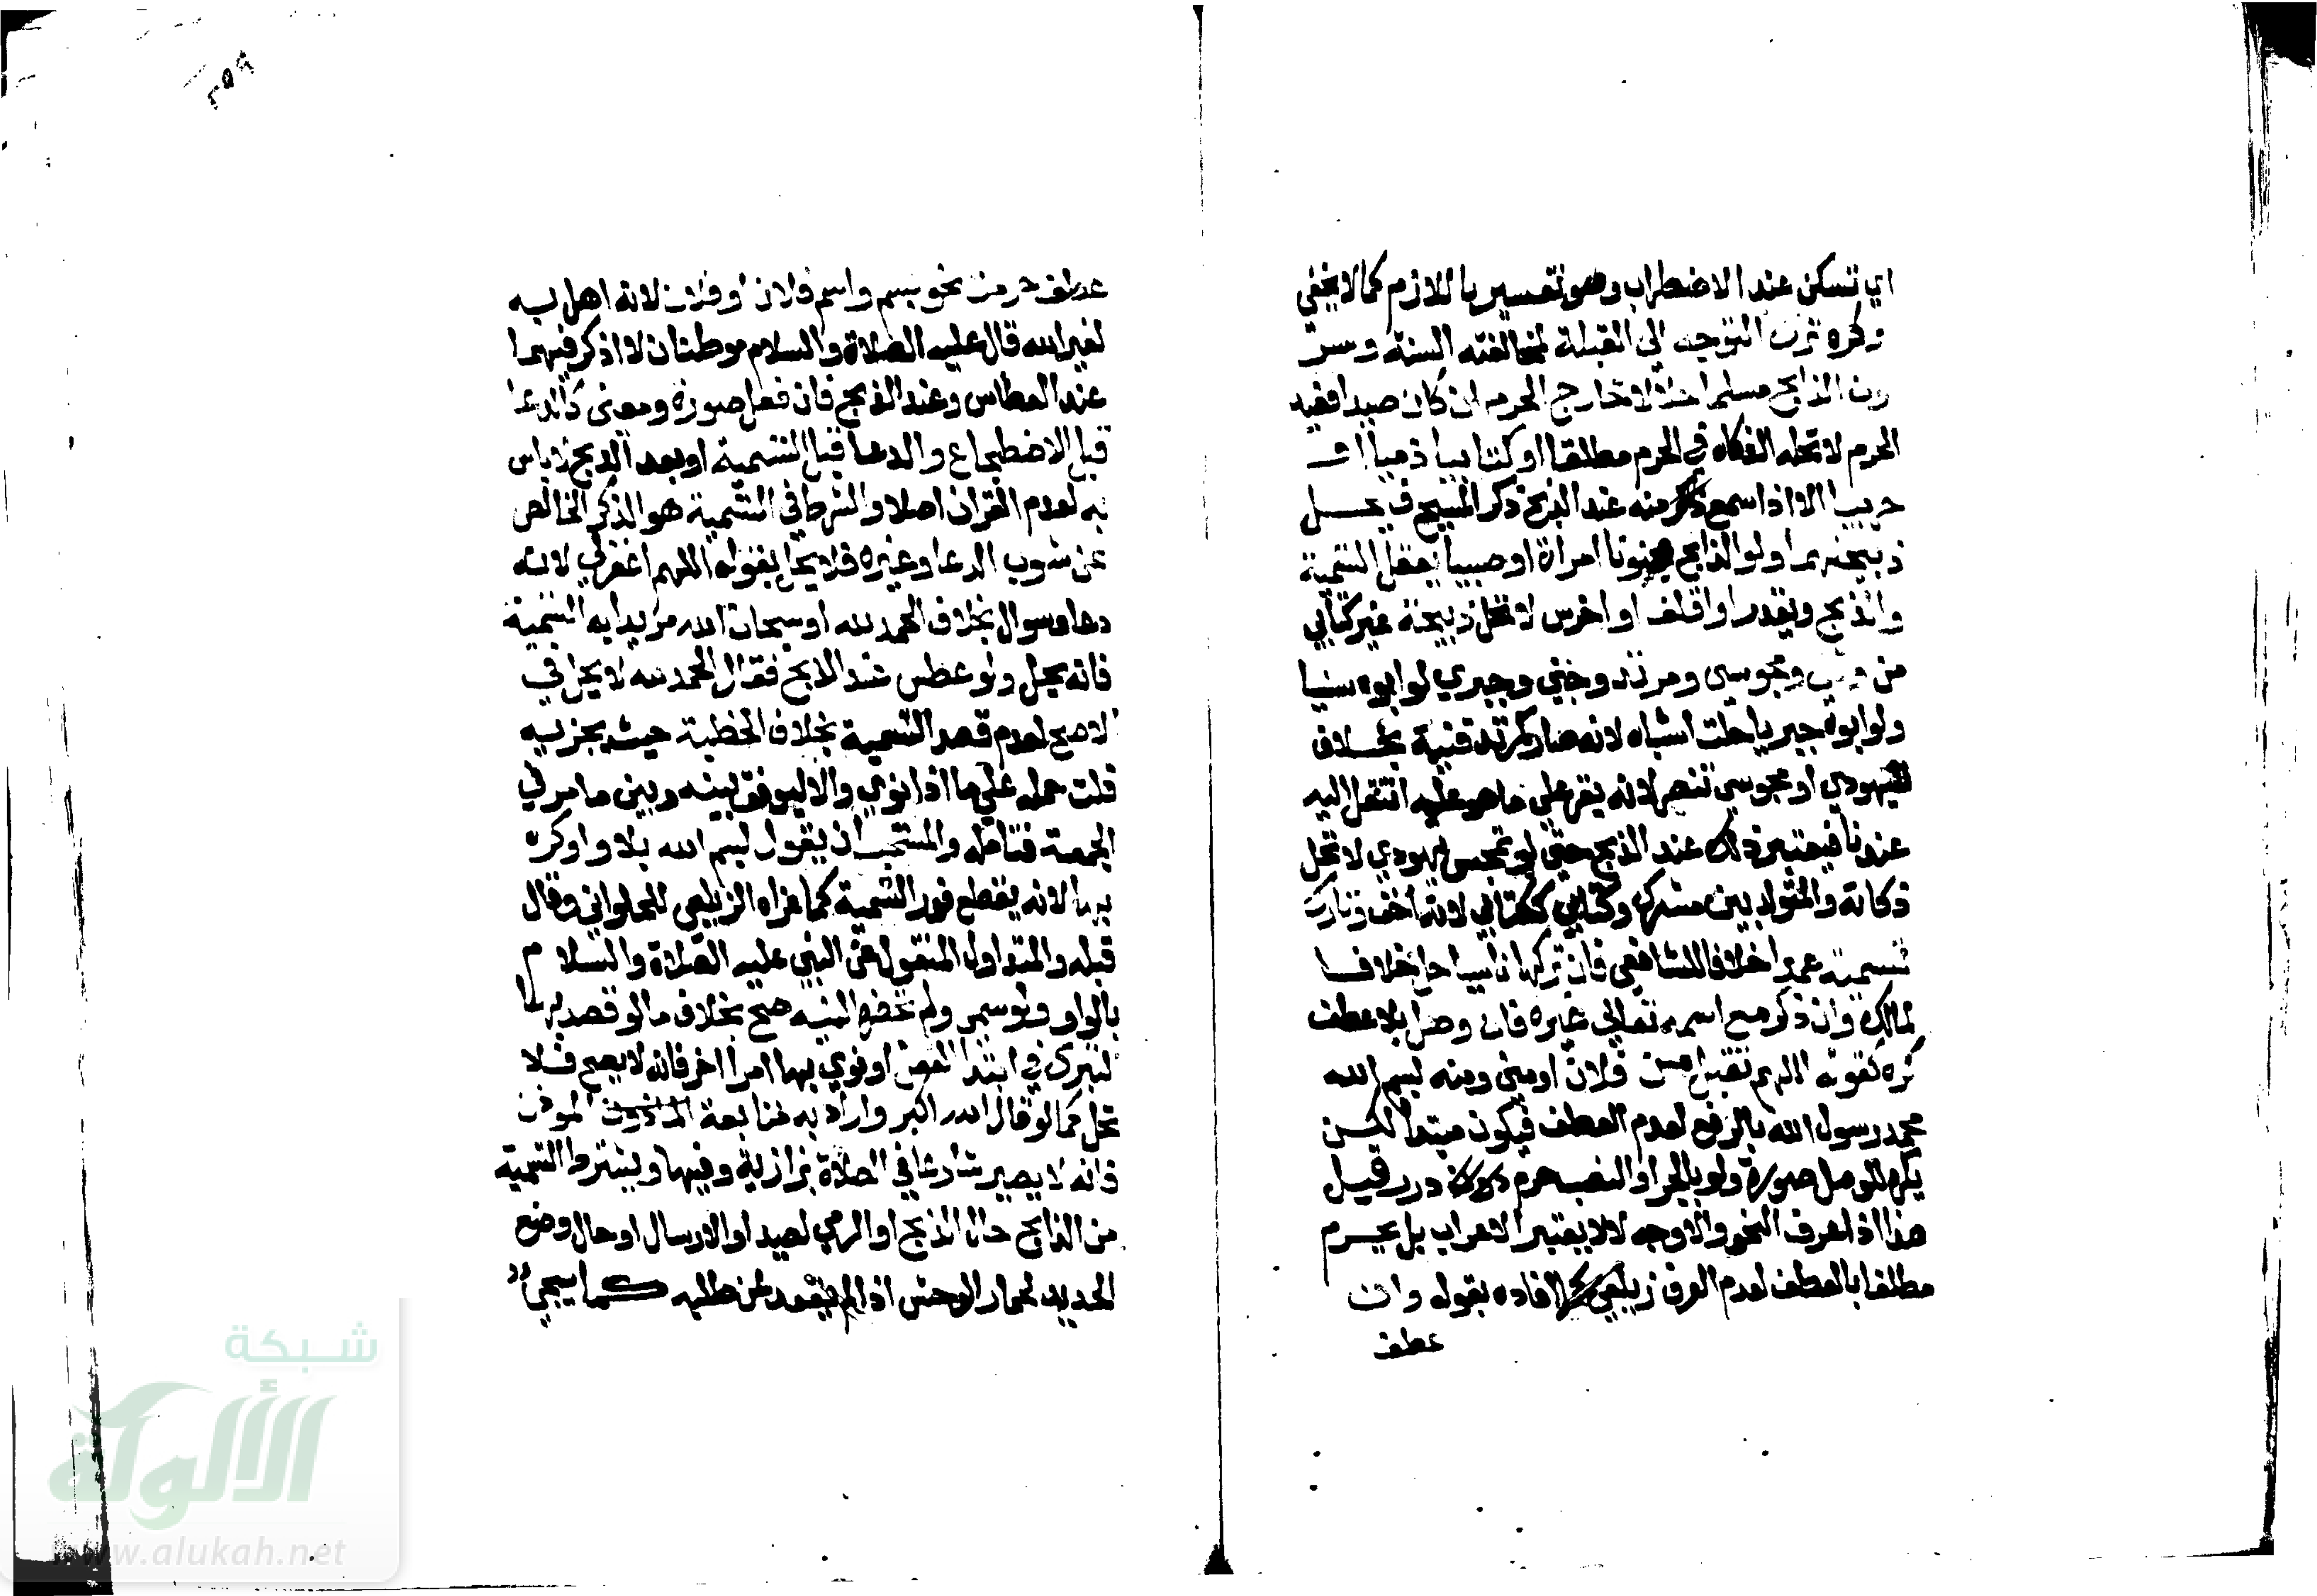 اي تسكن عند الاضطراب وهو تفسير باللازم كما لا يخفي
وكره ترك التوجه الي القبلة لمخالفته السنة وشرط
كون الذابح مسلما حلالا خارج الحرم ان كان صيدا فصيد
الحرم لا تحله الذكاه في الحرم مطلقا او كتابيا ذميا او
حربيا الا اذا سمع منه عند الذبح ذكر المسيح فتحل
ذبيحتهما ولو الذابح مجنونا امراة او صبيا يعقل التسمية
والذبح ويقدر او اقلف او اخرس لا تحل ذبيحة غير كتابي
من وثني ومجوسي ومرتد وجني وجبري لو ابوه سنيا
ولو ابوه جبريا حلت اشباه لانه صار كمرتد قنية بخلاف
يهودي او مجوسي تنصر لانه يقر علي ما هو عليه انتقل اليه
عندنا فيعتبر ذلك عند الذبح حتي لو تمجس يهودي لا تحل
ذكاته والمتولد بين مشرك وكتابي ككتابي لانه اخف وتارك
تسمية عمدا خلافا للشافعي فان تركها ناسيا حل خلافا
لمالك وان ذكر مع اسمه تعالي غيره فان وصل بلا عطف
كره كقوله اللهم تقبل من فلان او مني ومنه بسم الله
محمد رسول الله بالرفع لعدم العطف فيكون مبتدا لكن
يكره للوصل صورة ولو بالجر او النصب حرم درر قيل
هذا اذا عرف النحو والاوجه لا لا يعتبر الاعراب بل يحرم
مطلقا بالعطف لعدم العرف زيلعي افاده بقوله وان
عطف
عطف حرمت نحو بسم واسم فلان او فلان لانه اهل به
لغير الله قال عليه الصلاة والسلام موطنان لا اذكر فيهما
عند العطاس وعند الذبح فان فصل صورة ومعني كالدعا
قبل الاضطجاع والدعا قبل التسمية او بعد الذبح لا باس
به لعدم القران اصلا والشرط في التسمية هو الذكر الخالص
عن شوب الدعا وغيره فلا يحل بقوله اللهم اغفر لي لانه
دعا وسوال بخلاف الحمد لله او سبحان الله مريدا به التسمية
فانه يحل ولو عطس عند الذبح فقال الحمد لله لا يحل في
الاصح لعدم قصد التسمية بخلاف الخطبة حيث يجزيه
قلت حمله علي ما اذا نوي والا ليوفق بينه وبين ما مر في
الجمعة فتامل والمستحب ان يقول بسم الله بلا واو وكره
بها لانه يقطع فور التسمية كما عزاه الزيلعي للحلواني وقال
قبله والمتداول المنقول عن النبي عليه الصلاة والسلام
بالواو ولو سمي ولم تحضره النيه صح بخلاف ما لو قصد بها
التبرك في ابتدا الفعل او نوي بها امرا اخر فانه لا يصح فلا
تحل كما لو قال الله اكبر واراد به متابعة الموذن
فانه لا يصير شارعا في الصلاة بزازية وفيها ويشترط التسمية
من الذابح حال الذبح او الرمي لصيد او الارسال او حال وضع
الحديد لحمار الوحش اذا لم يقعد عن طلبه كما سيجي
شبكة
الألوكة
www.alukah.net